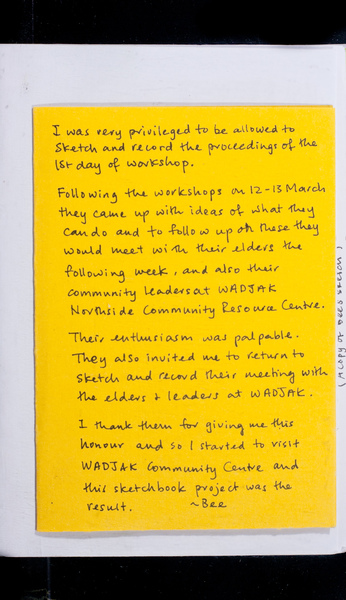 I was very privileged to be allowed to
sketch and record the proceedings of the
1st day of workshop.
Following the workshops on 12-13 March
they came up with ideas of what they
can do and to follow up on these they
would meet with their elders the
following week, and also their
community leaders at WADJAK
Northside Community Resource Centre.
Their enthusiasm was palpable.
They also invited me to return to
sketch and record their meeting with
the elders & leaders at WADJAK.
I thank them for giving me this
honour and so I started to visit
WADJAK Community Centre and
this sketchbook project was the
result. ~Bee
(A COPY OF BEE'S SKETCH)